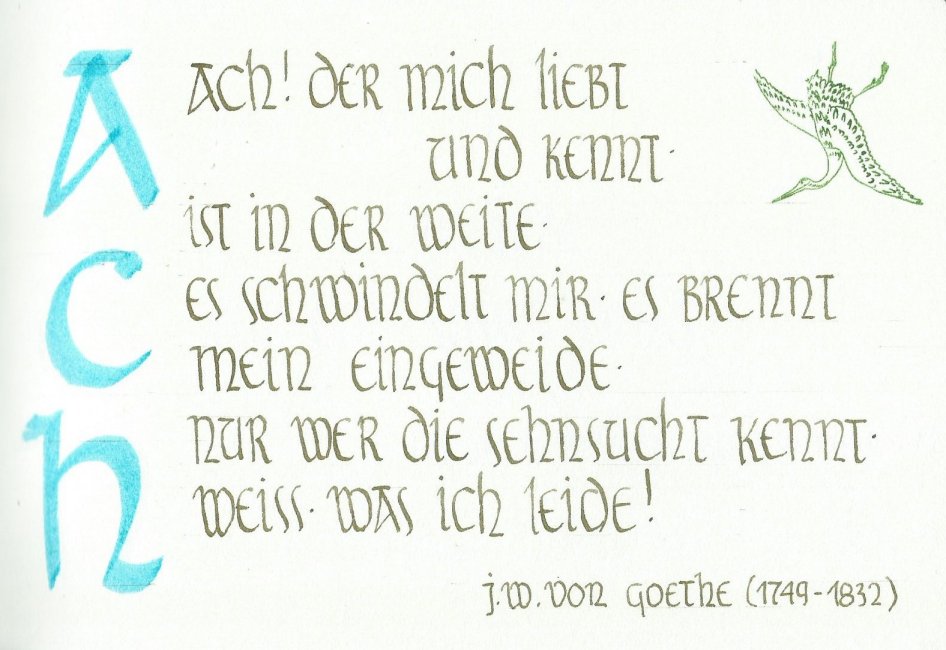 Ach
Ach! Der mich liebt
und kennt·
ist in der Weite·
Es schwindelt mir· es brennt
mein Eingeweide·
Nur wer die Sehnsucht kennt·
weiss· was ich leide!
J.W. von Goethe (1749-1832)